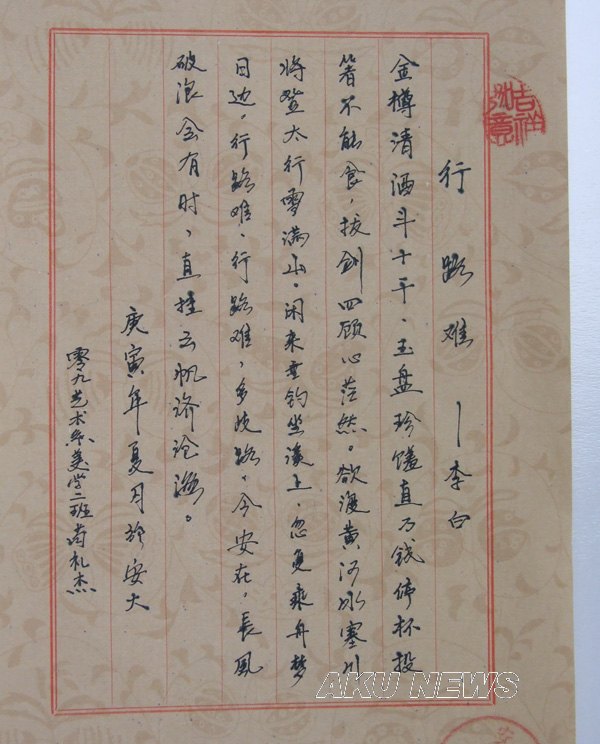 吉祥如意
行路难 — 李白
金樽清酒斗十千、玉盘珍馐直万钱停杯投
箸不能食，拔剑四顾心茫然。欲渡黄河冰塞川
将登太行雪满山。闲来垂钓坐溪上、忽复乘舟梦
日边。行路难、行路难，多歧路。今安在，長风
破浪会有时，直挂云帆济沧海。
庚寅年夏月於安大
零九艺术系美学二班
AKU NEWS